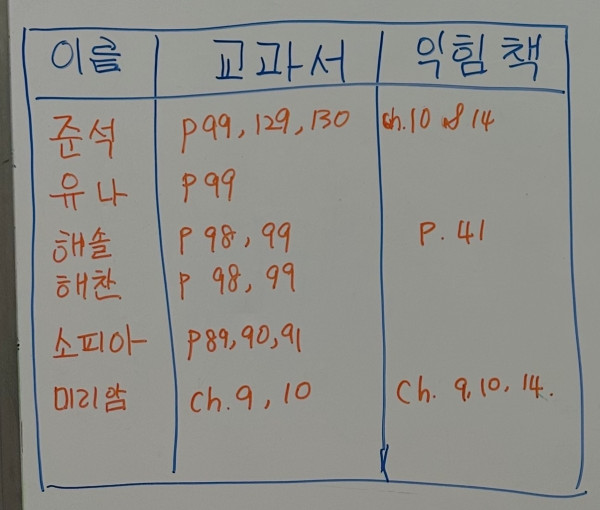 이름 교과서 익힘책
준석 p99, 129, 130 ch.10 & 14
유나 p99
해솔 p 98, 99 P. 41
해찬 p 98, 99
소피아 p89, 90, 91
미리암 ch. 9, 10 Ch. 9, 10, 14.